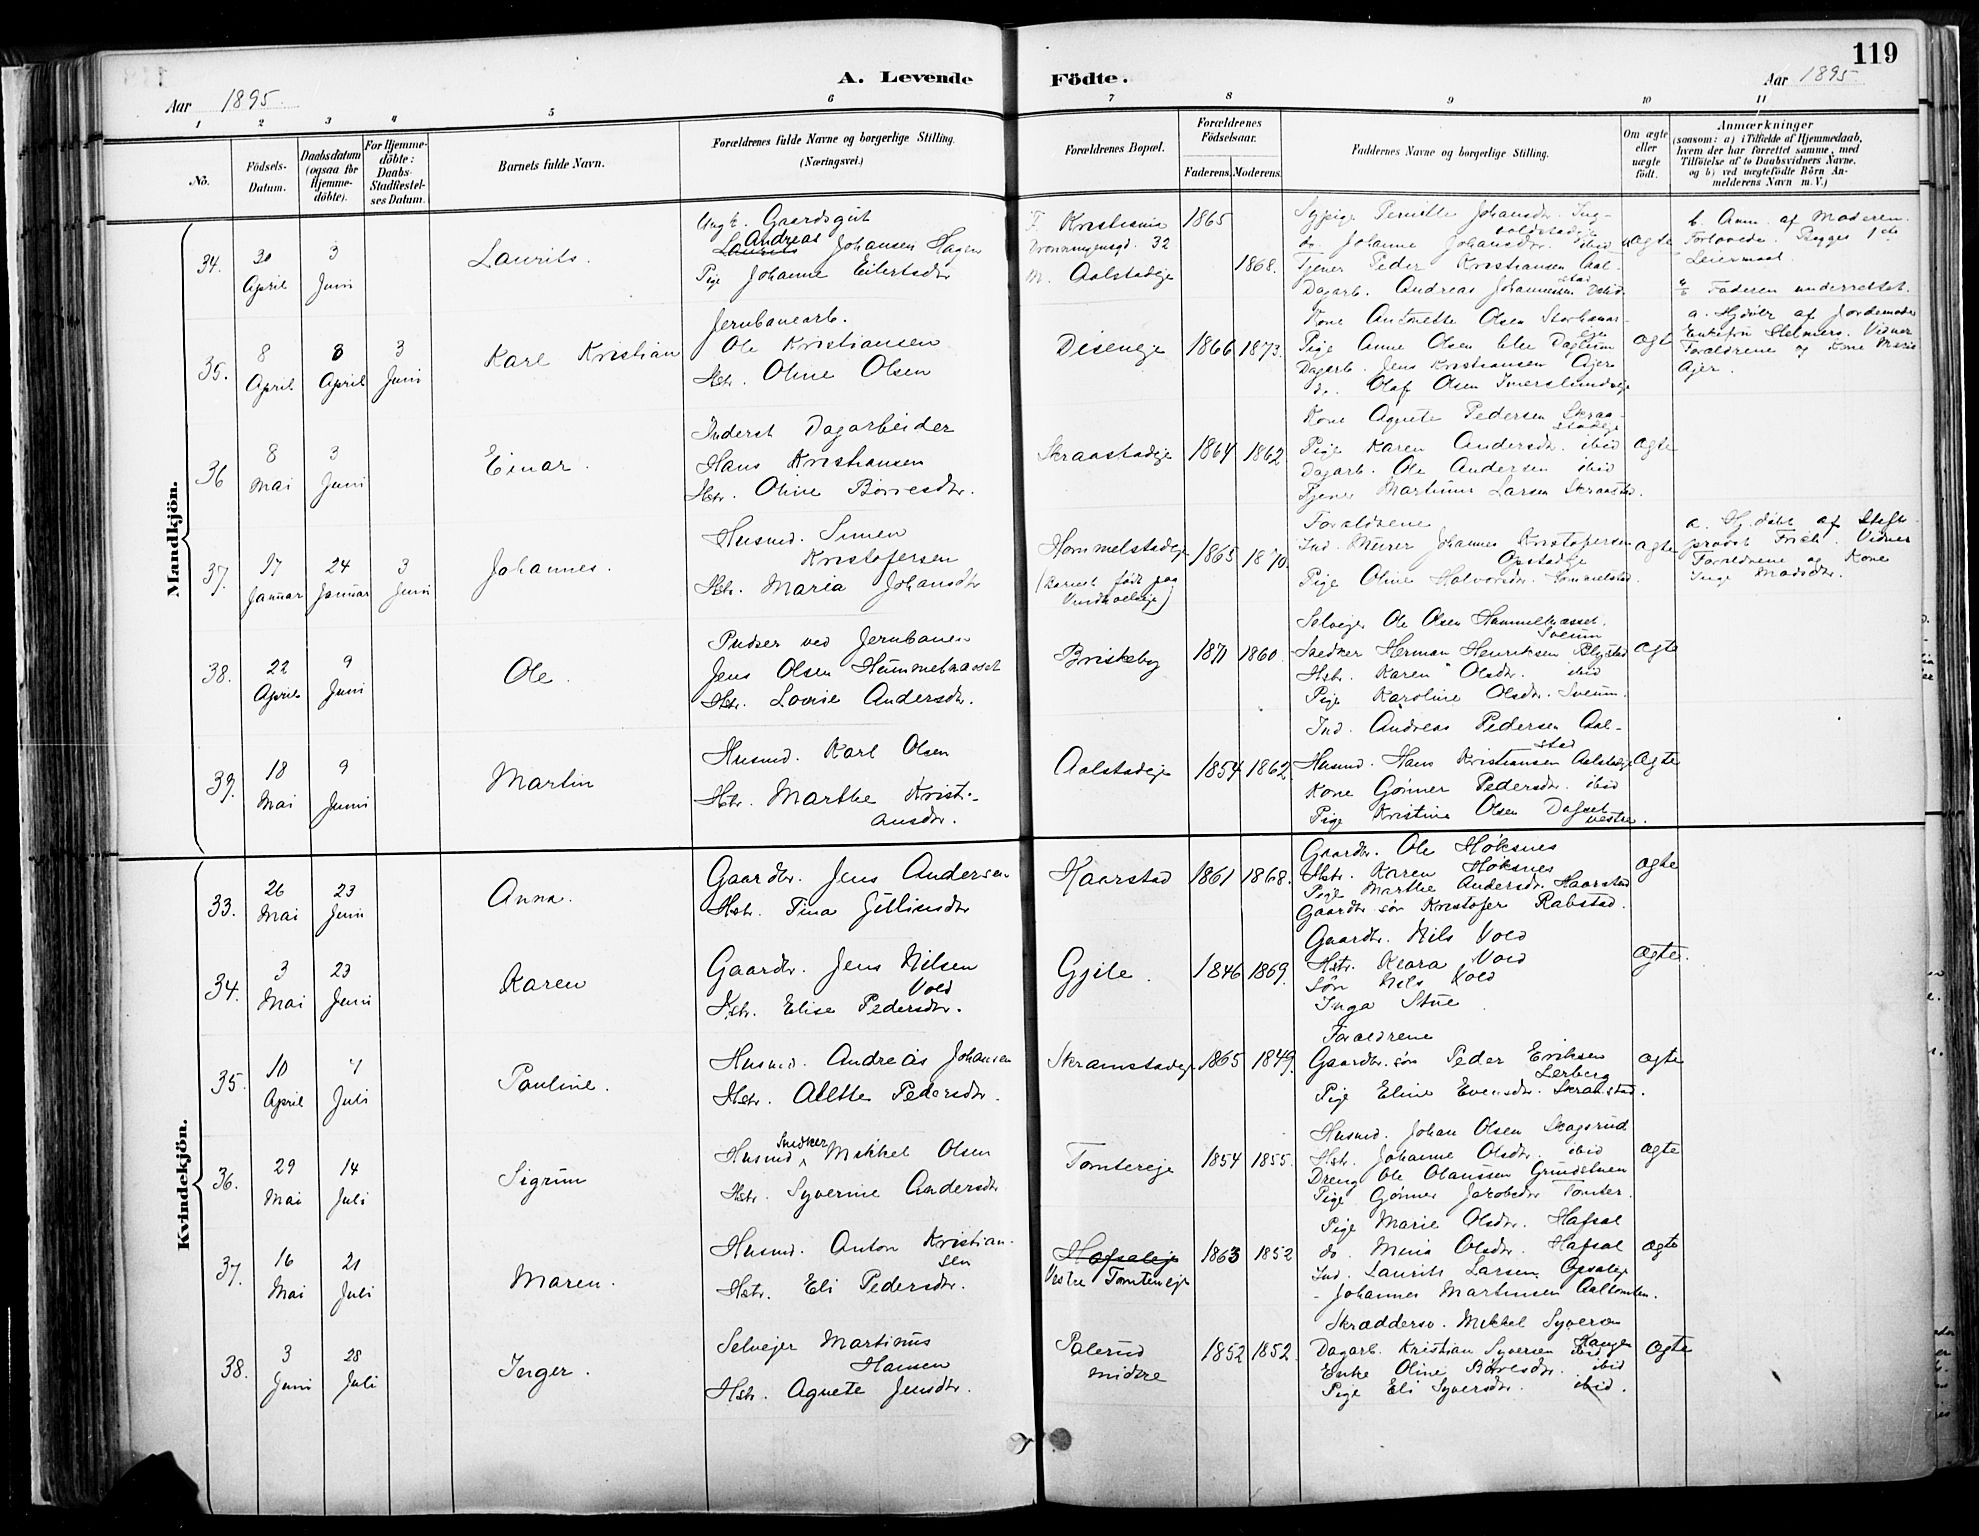 119
A. Levende Födte.
Aar 1895
Aar 1895
1 2 3 4 5 6 7 8 9 10 11
No.
Födsels-Datum.
Daabsdatum (ogsaa for Hjemme-döbte).
For Hjemme-döbte: Daabs-Stadfæstelses Datum.
Barnets fulde Navn.
Forældrenes fulde Navne og borgerlige Stilling.
(Næringsvei.)
Forældrenes Bopæl.
Forældrenes Födselsaar.
Faderens. Moderens.
Faddernes Navne og borgerlige Stilling.
Om ægte eller uægte födt.
Anmærkninger
(saasom: a) i Tilfælde af Hjemmedaab, hvem der har forrettet samme, med Tilföielse af to Daabsvidners Navne, og b) ved uægtefödte Börn Anmelderens Navn m. V.)
Mandkjön.
34. 30 April 3 Juni Laurits.
Ungk. Gaardsgut
Laurits Andreas Johansen Hagen
Pige Johanne Eilertsdtr
F. Kristiania 1865
Dronningensgd. 32
M. Aalstadeje 1868.
Sypige Pernille Johansdr.
do. Johanne Johansdr. ibid uægte
Tjener Peder Kristiansen Aalstad
Dagarb. Andreas Johannesen
b. Anm. af Moderen.
Forlovede. Begges 1ste Leiermaal.
Faderen underrettet.
35. 8 April 8 April 3 Juni Karl Kristian
Jernbanearb.
Ole Kristiansen
Hstr. Oline Olsen
Diseneje 1866 1873.
Kone Antonette Olsen
Pige Anne Olsen
Dagarb. Jens Kristiansen Ajer
do. Olaf Olsen
ægte
a. Hjdöbt af Jordemoder
Enkefru Helmers. Vidner
Forældrene og Kone Marie
Ajer.
36 8 Mai 3 Juni Einar.
Inderst Dagarbeider
Hans Kristiansen
Hstr. Oline Börresdtr.
Skraastadeje 1864 1862
Kone Agnete Pedersen Skraastadeje
Pige Karen Andersdr. ibid
Dagarb. Ole Andersen ibid
Tjener Martinus Larsen Skraastad.
ægte
37. 17 Januar 24 Januar 3 Juni Johannes.
Husmd. Simen
Kristofersen
Hstr. Maria Johansdtr
Hommelstadeje 1865 1870.
(Barnet födt paa
Forældrene
Ind. Murer Johannes Kristofersen
Opstadeje
Pige Oline Halvorsdr. Hommelstad.
ægte
a. Hj.döbt af Stiftsprovst Vidner
Forældrene og Kone
Inge Madsdtr.
38. 22 April 9 Juni Ole.
Pudser ved Jernbanen
Jens Olsen Hummelnæsset
Hstr. Lovise Andersdtr.
Briskeby 1871 1860
Selvejer Ole Olsen Hummelnæsset.
Snedker Herman Henriksen
Hstr. Karen Olsdtr. ibid
Pige Karoline Olsdtr. Sveum.
ægte
39. 18 Mai 9 Juni Martin
Husmd. Karl Olsen
Hstr. Marthe Kristiansdtr.
Aalstadeje 1854 1862.
Ind. Andreas Pedersen Aalstad
Husmd. Hans Kristiansen Aalstadeje
Kone Gönner Pedersdr. ibid
Pige Kristine Olsen
ægte
Kvindekjön.
33. 26 Mai 23 Juni Anna.
Gaardbr. Jens Andersen
Hstr. Tina
Haarstad 1861 1868.
Gaardbr. Ole Höksnes
Hstr. Karen Höksnes
Pige Marthe Andersdr. Haarstad
Gaardbr sön Kristofer Rabstad.
ægte
34. 3 Mai 23 Juni Karen
Gaardbr. Jens Nilsen
Vold
Hstr. Elise Pedersdtr.
Gjile. 1846 1869.
Gaardbr. Nils Vold
Hstr. Klara Vold
Sön Nils Vold
Inga Stue
ægte.
35. 10 April 7 Juli Pauline.
Husmd. Andreas Johansen
Hstr. Alette Pedersdtr.
Skramstadeje 1865 1849.
Forældrene
Gaardbr. sön Peder Eriksen
Lerberg
Pige Eline Evensdtr. Skraastad.
ægte
36. 29 Mai 14 Juli Sigrun
Husmd Snedker Mikkel Olsen
Hstr. Syverine Andersdtr
Tomtereje 1854 1855.
Husmd. Johan Olsen Skagsrud
Hstr. Johanne Olsdtr. ibid
Dreng Ole Olaussen
Pige Gönner Jakobsdtr Tomter.
ægte
37. 16 Mai 21 Juli Maren.
Husmd. Anton Kristiansen
Hstr. Eli Pedersdtr.
Hafsaleje 1863 1852
Vestre Tomtereje
Pige Marie Olsdr. Hafsal
do. Mina Olsdr. Hafsal
Ind. Laurits Larsen Opsaleje
- Johannes Martinsen
ægte
38. 3 Juni 28 Juli Inger.
Selvejer Martinus
Hansen
Hstr. Agnete Jensdtr.
Palerud
nidre 1852 1852.
Skræddersv. Mikkel Syversen
Dagarb. Kristian Syversen ibid
Enke Oline Börresdr. ibid
Pige Eli Syversdr. ibid.
ægte